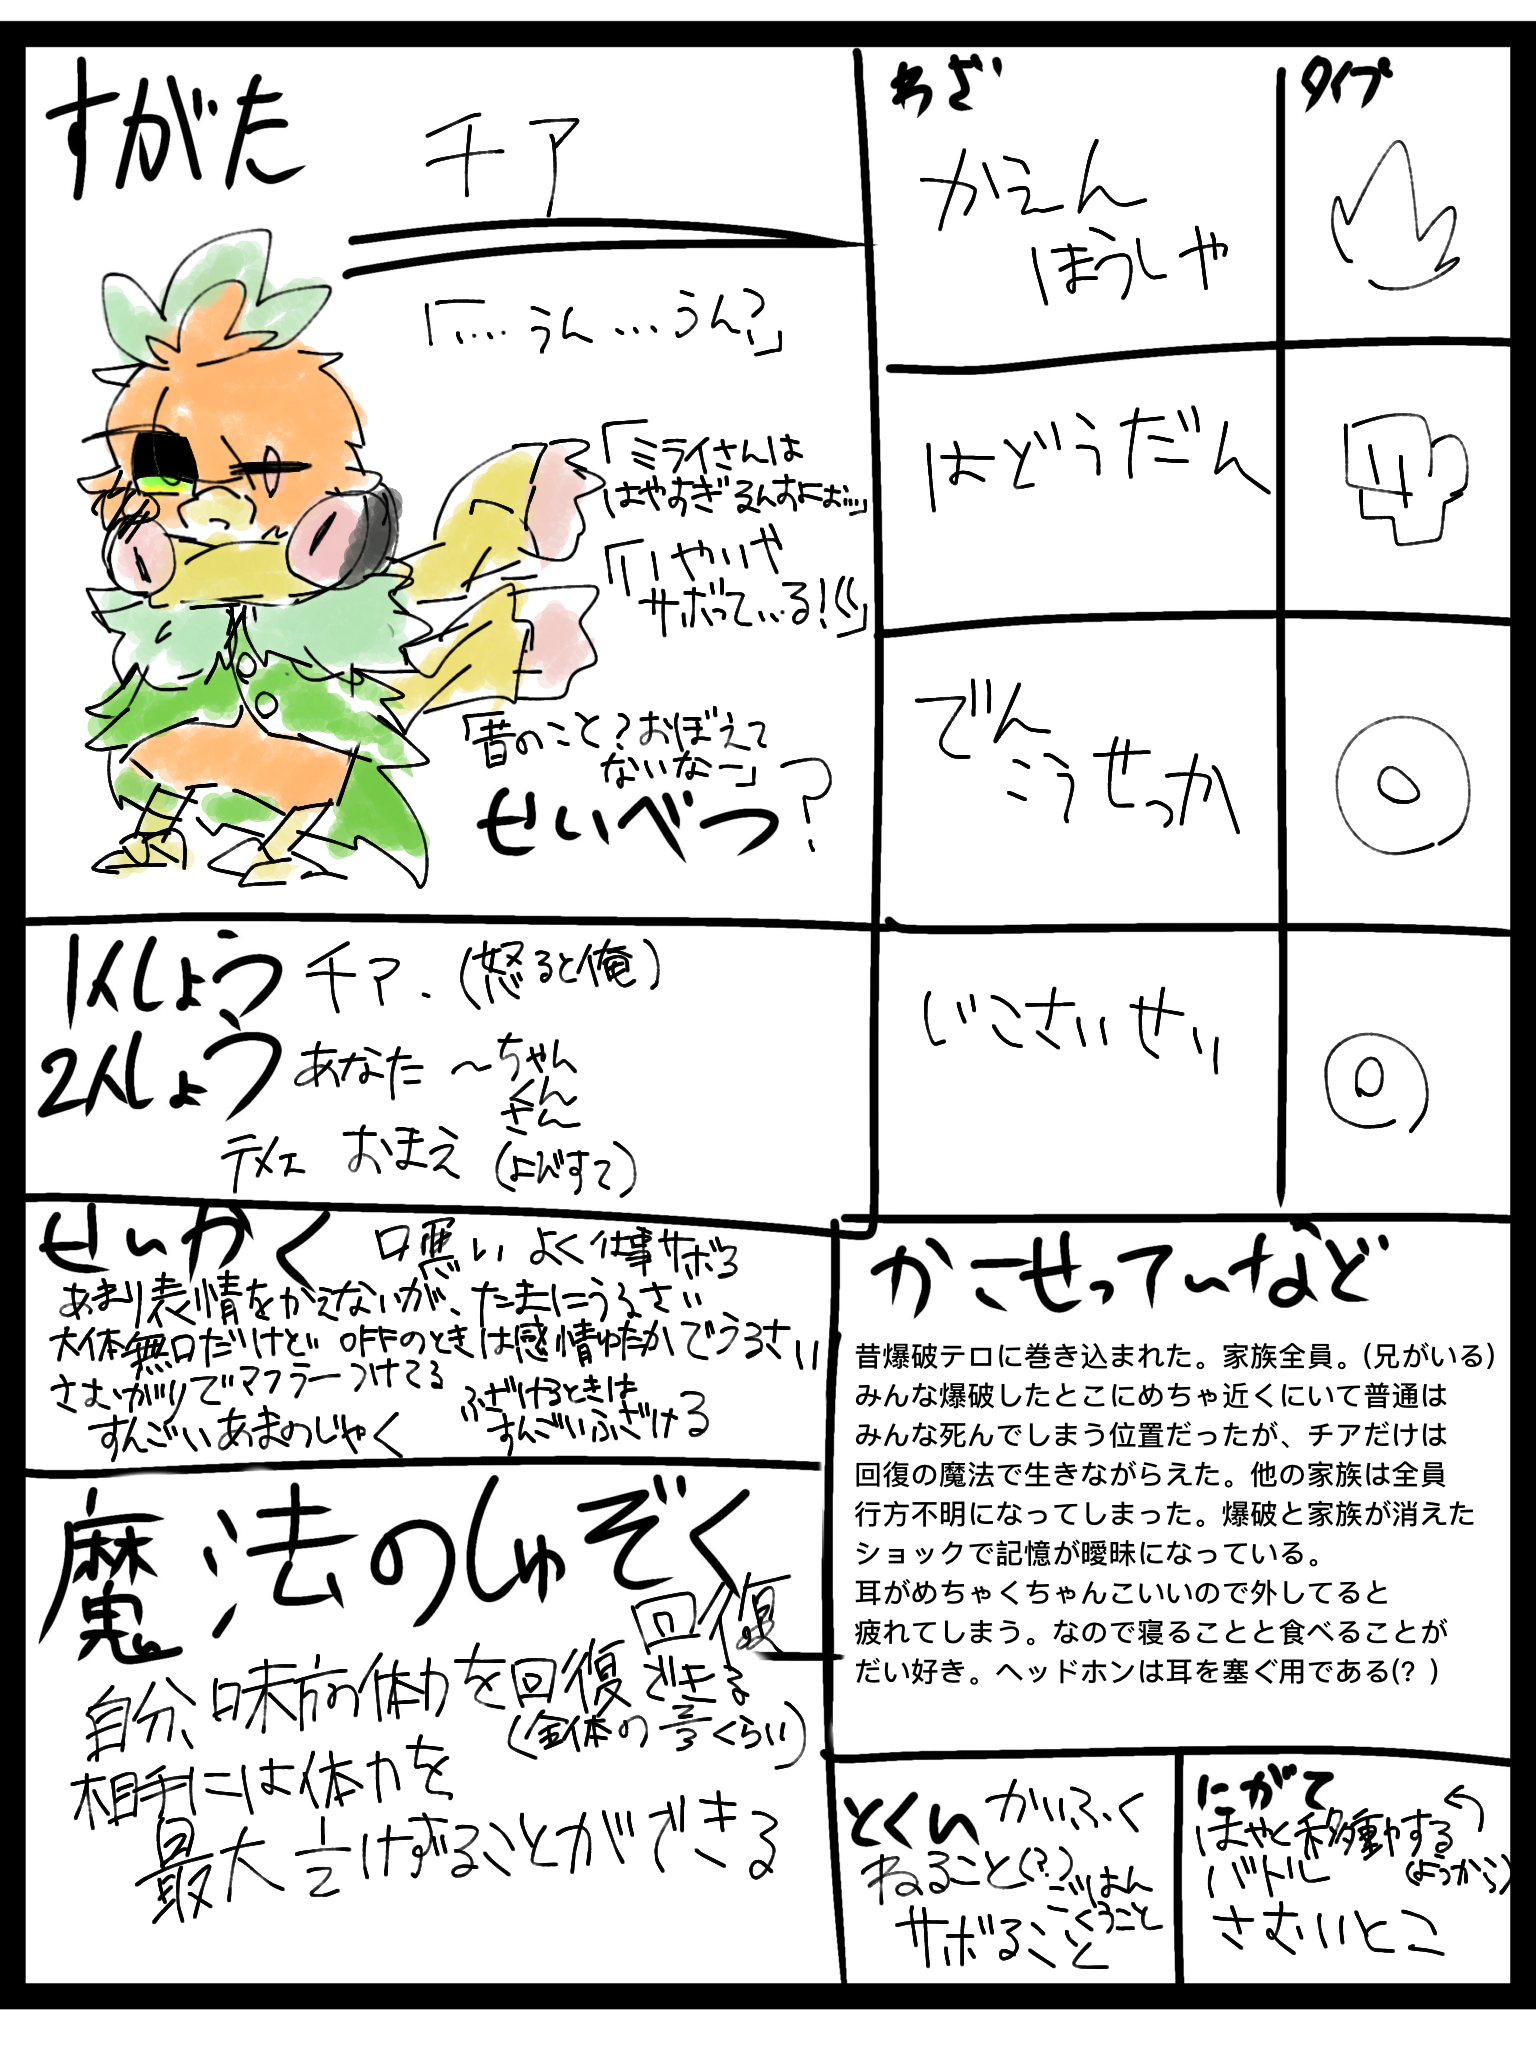 すがた
チア
「…うん…うん?」
「ミライさんは
はやすぎるんすよぉ…」
「いやいや
サボっている!((」
「昔のこと?おぼえて
ないなー」
せいべつ ?
わざ
タイプ
かえん
ほうしゃ
はどうだん
でん
こうせっか
じこさいせい
1人しょう チア.(怒ると俺)
2人しょう あなた 〜ちゃん
くん
さん
テメェ おまえ (よびすて)
せいかく 口悪い よく仕事サボる
あまり表情をかえないが、たまにうるさい
大体無口だけど 昨のときは感情ゆたかでうるさい
さむがりでマフラーつけてる
ふざけるときは
すんごいふざける
すんごいあまのじゃく
魔法のしゅぞく
回復
自分、味方の体力を回復できる
(全体の 2/3くらい)
相手には体力を
最大 1/2けずることができる
かこせってぃなど
昔爆破テロに巻き込まれた。家族全員。(兄がいる)
みんな爆破したとこにめちゃ近くにいて普通は
みんな死んでしまう位置だったが、チアだけは
回復の魔法で生きながらえた。他の家族は全員
行方不明になってしまった。爆破と家族が消えた
ショックで記憶が曖昧になっている。
耳がめちゃくちゃんこいいので外してると
疲れてしまう。なので寝ることと食べることが
だい好き。ヘッドホンは耳を塞ぐ用である(?)
とくい かいふく
ねること(?)
ごはん
くうこと
サボること
にがて
はやく移動する
バトル
(ようから)
さむいとこ